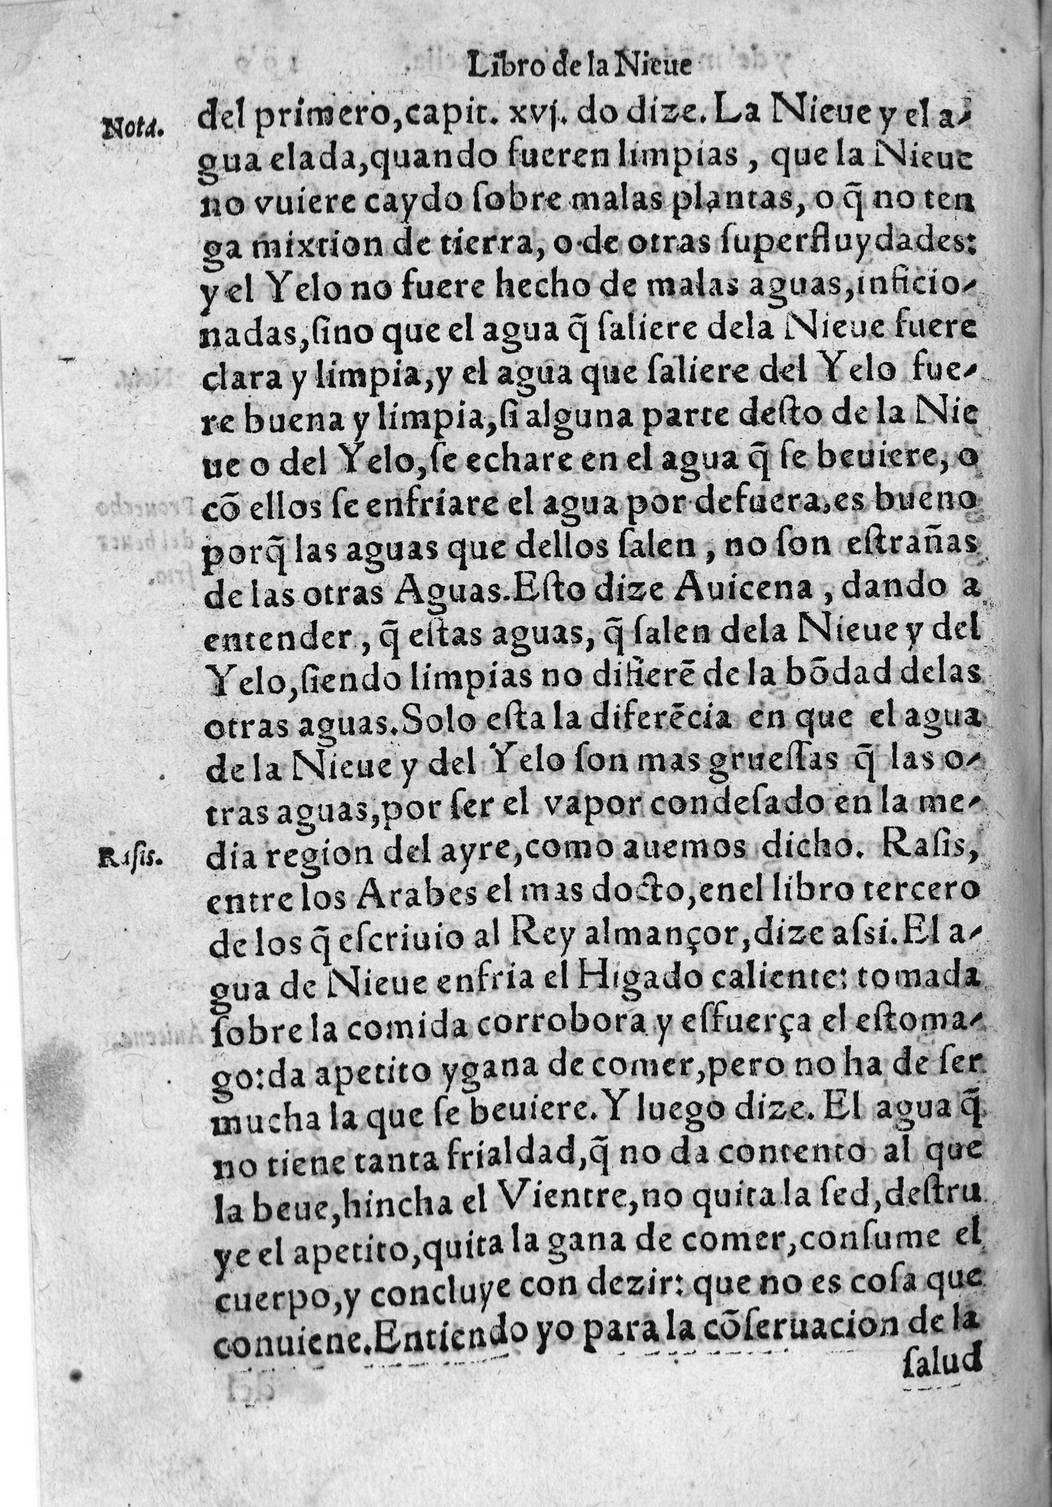 Libro de la Nieue
Nota.
del primero, capit. xvj. do dize. La Nieue y el a-
gua elada, quando fueren limpias, que la Nieue
no vuiere caydo ſobre malas plantas, o q̃ no ten
ga mixtion de tierra, o de otras ſuperfluydades:
y el Yelo no fuere hecho de malas aguas, inficio-
nadas, ſino que el agua q̃ ſaliere dela Nieue fuere
clara y limpia, y el agua que ſaliere del Yelo fue-
re buena y limpia, ſi alguna parte deſto de la Nie
ue o del Yelo, ſe echare en el agua q̃ ſe beuiere, o
cõ ellos ſe enfriare el agua por defuera, es bueno
porq̃ las aguas que dellos ſalen, no ſon eſtrañas
de las otras Aguas. Eſto dize Auicena, dando a
entender, q̃ eſtas aguas, q̃ ſalen dela Nieue y del
Yelo, ſiendo limpias no difierẽ de la bõdad delas
otras aguas. Solo eſta la diferẽcia en que el agua
de la Nieue y del Yelo ſon mas grueſſas q̃ las o-
tras aguas, por ſer el vapor condeſado en la me-
Raſis.
dia region del ayre, como auemos dicho. Raſis,
entre los Arabes el mas docto, enel libro tercero
de los q̃ eſcriuio al Rey almançor, dize aſsi. El a-
gua de Nieue enfria el Higado caliente: tomada
ſobre la comida corrobora y eſfuerça el eſtoma-
go: da apetito y gana de comer, pero no ha de ſer
mucha la que ſe beuiere. Y luego dize. El agua q̃
no tiene tanta frialdad, q̃ no da contento al que
la beue, hincha el Vientre, no quita la ſed, deſtru
ye el apetito, quita la gana de comer, conſume el
cuerpo, y concluye con dezir: que no es coſa que
conuiene. Entiendo yo para la cõſeruacion de la
ſalud